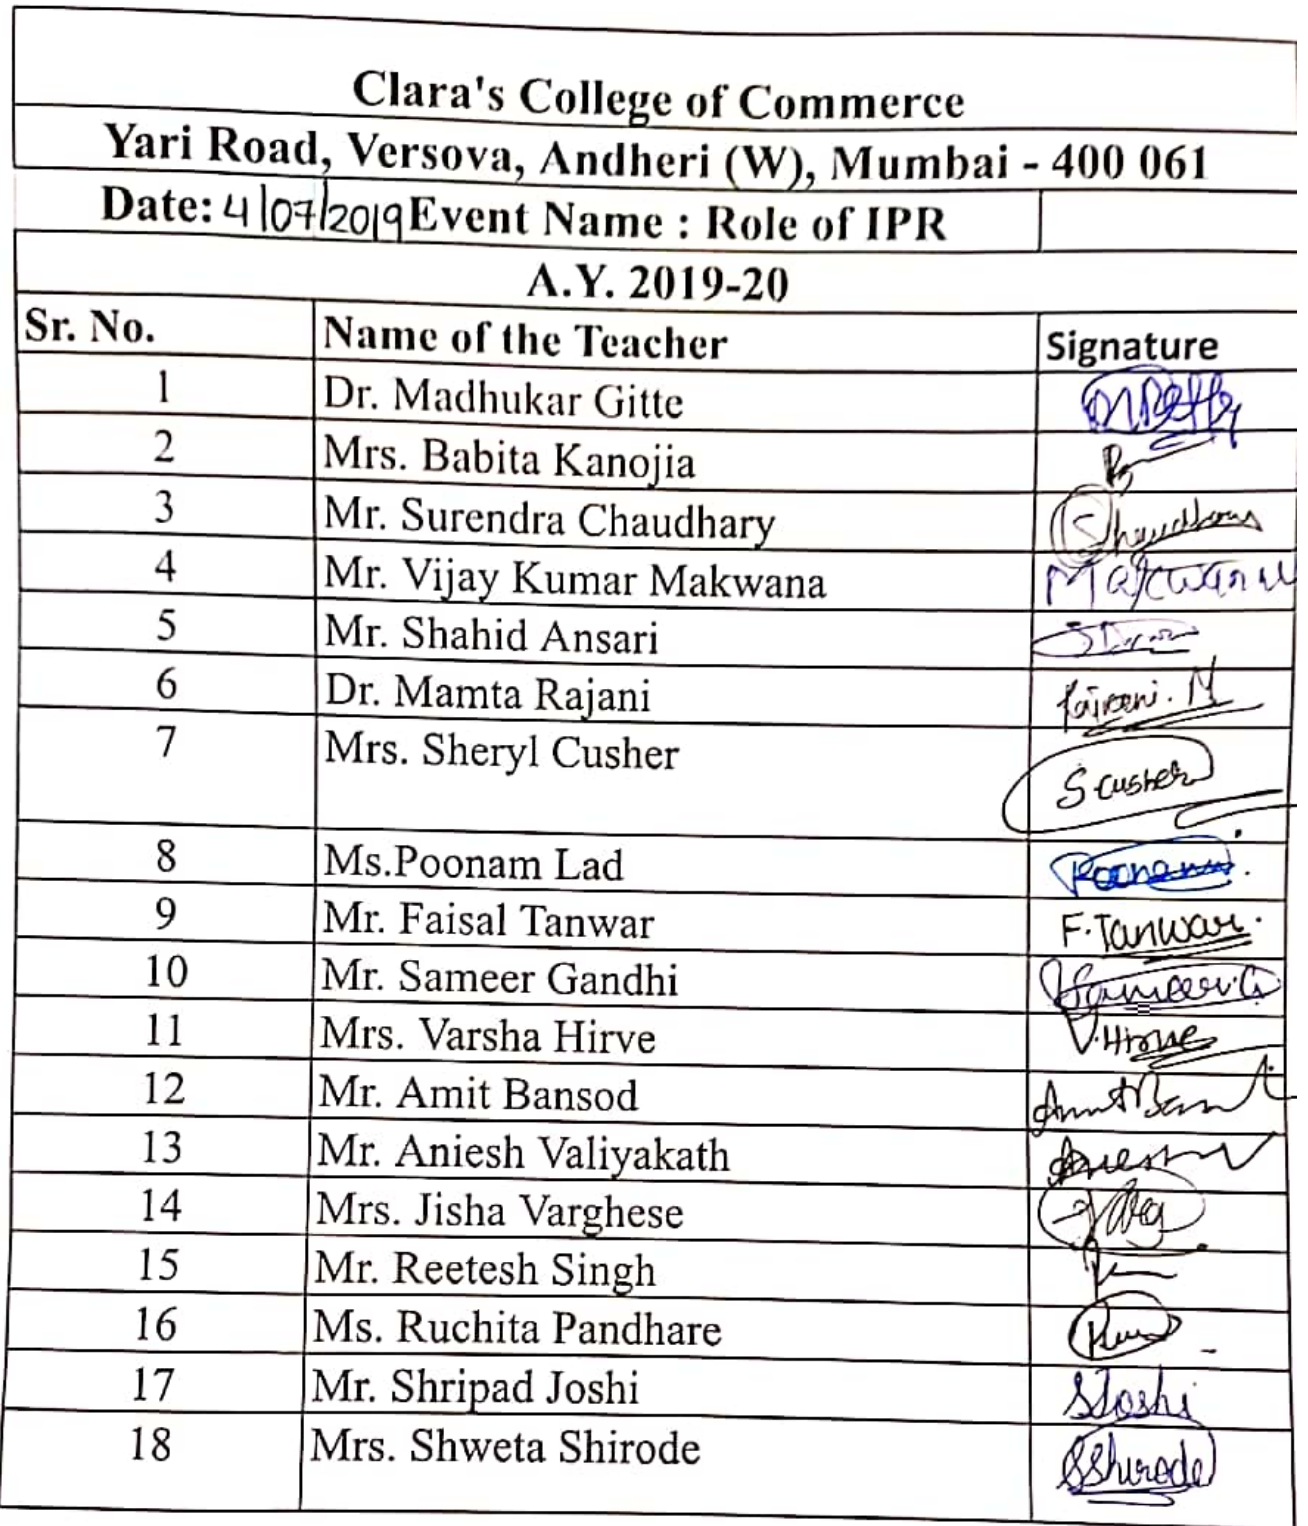 Clara's College of Commerce
Yari Road, Versova, Andheri (W), Mumbai - 400 061
Date: 4/07/2019 Event Name : Role of IPR
A.Y. 2019-20
Sr. No. Name of the Teacher Signature
1 Dr. Madhukar Gitte
2 Mrs. Babita Kanojia
3 Mr. Surendra Chaudhary
4 Mr. Vijay Kumar Makwana Makwana
5 Mr. Shahid Ansari
6 Dr. Mamta Rajani Rajani. M
7 Mrs. Sheryl Cusher S.Cusher
8 Ms.Poonam Lad Poonam
9 Mr. Faisal Tanwar F.Tanwar.
10 Mr. Sameer Gandhi Sameer.G
11 Mrs. Varsha Hirve V.Hirve
12 Mr. Amit Bansod
13 Mr. Aniesh Valiyakath
14 Mrs. Jisha Varghese
15 Mr. Reetesh Singh
16 Ms. Ruchita Pandhare
17 Mr. Shripad Joshi SJoshi
18 Mrs. Shweta Shirode SShirode